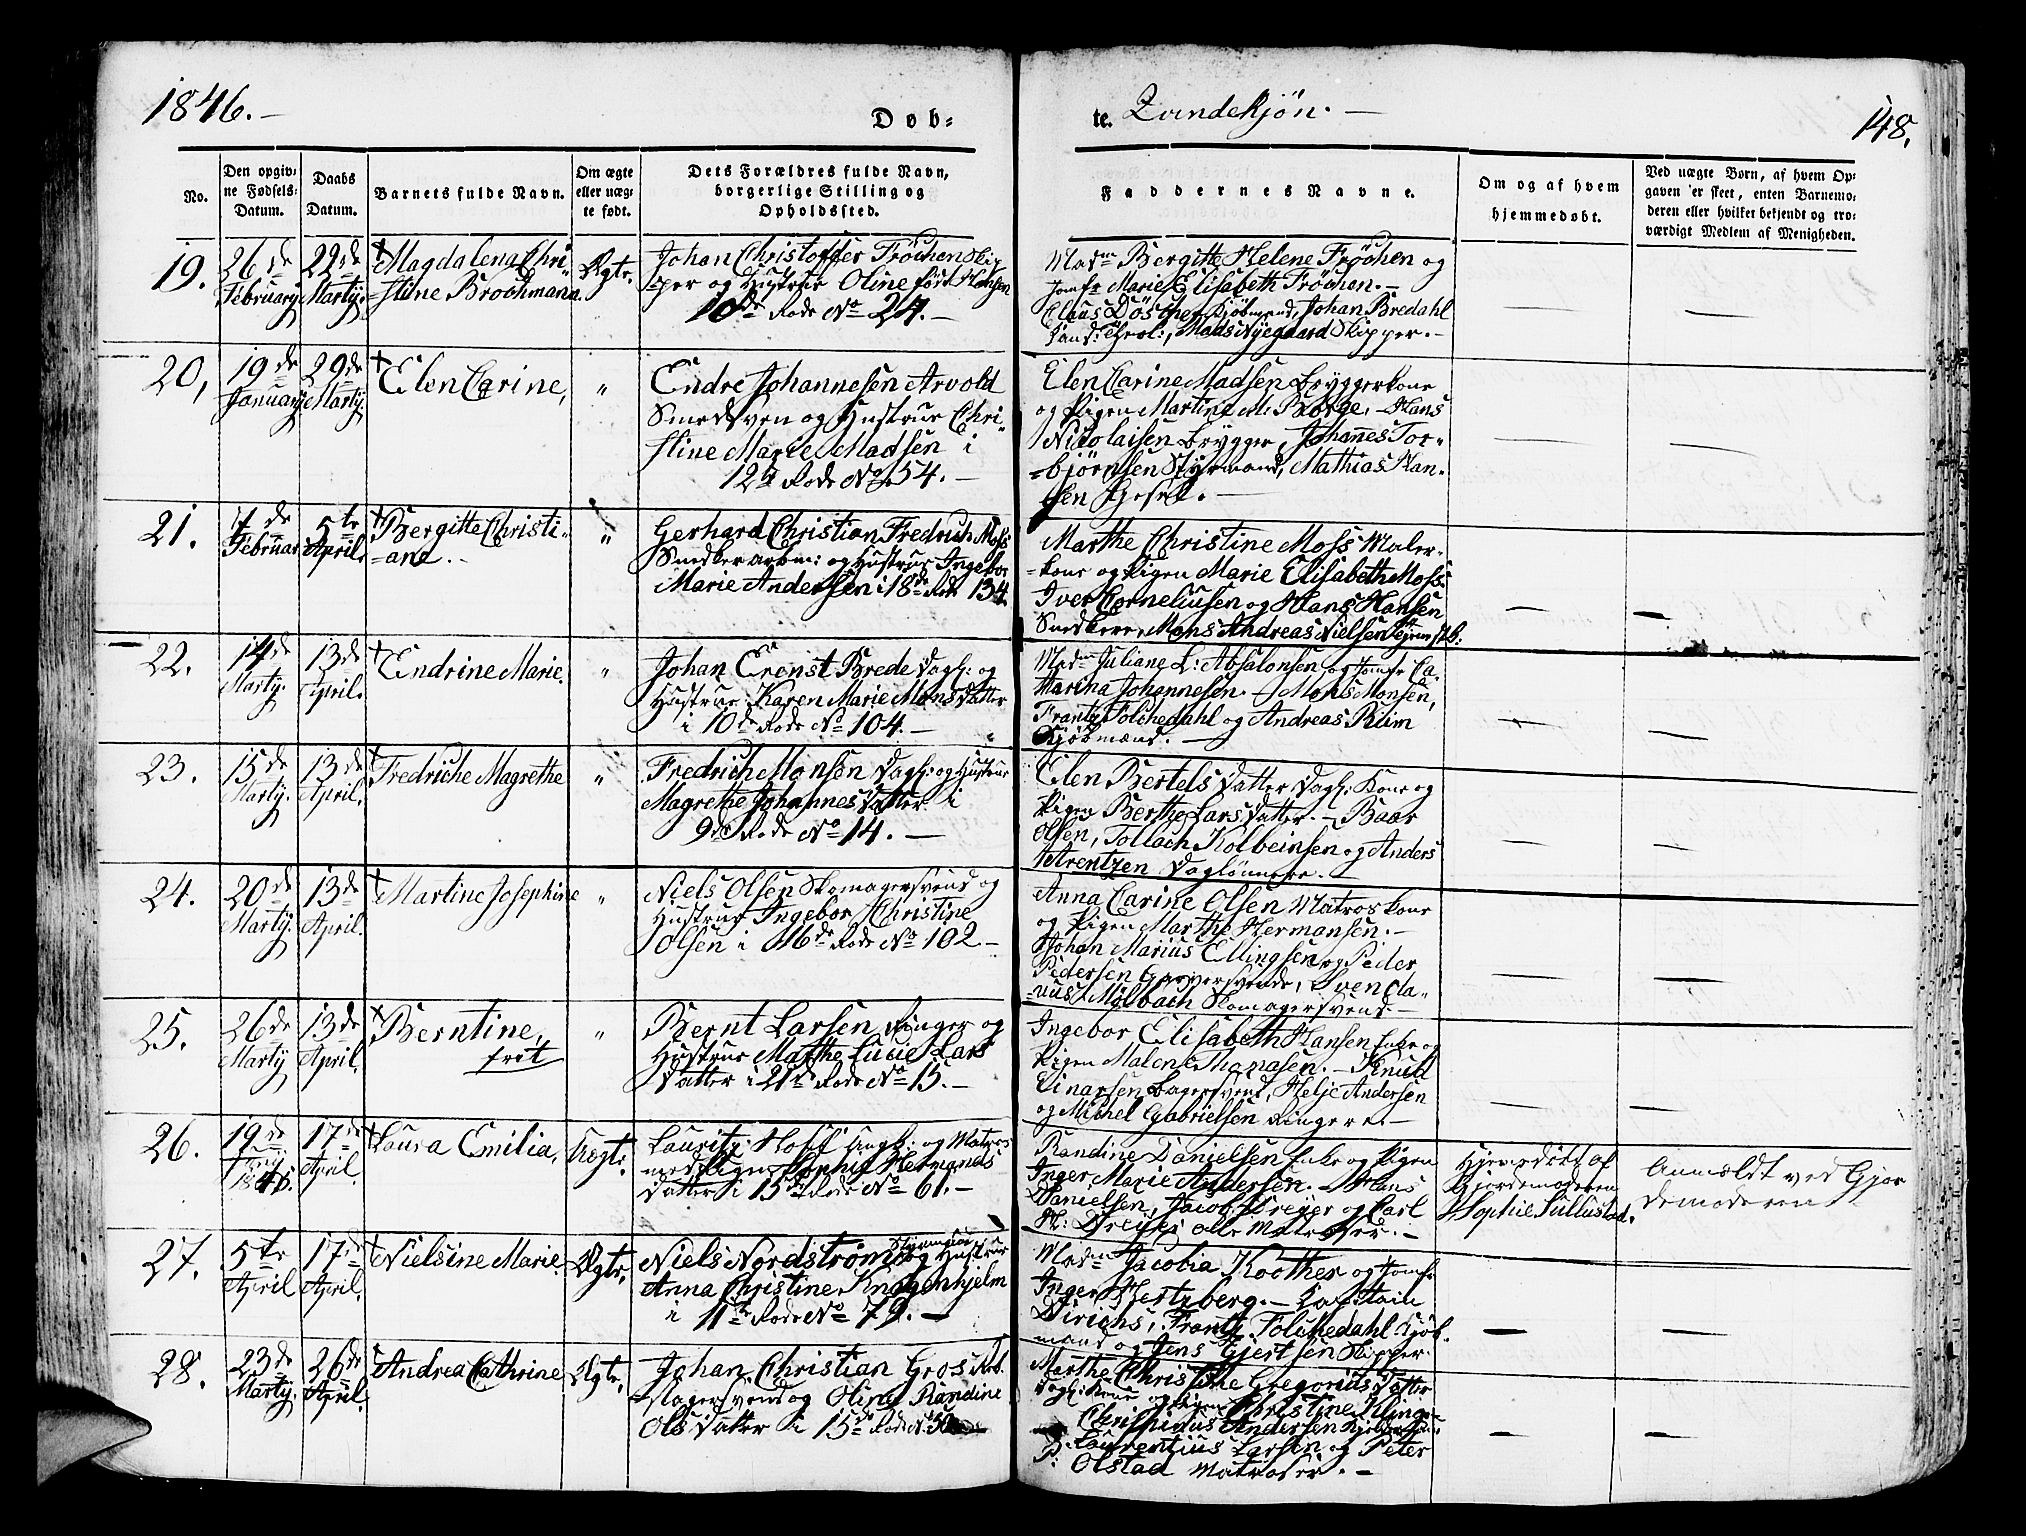 1846.
Døb-
te. Qvindekjøn.
148.
No.
Den opgiv-
ne Fødsels-
Datum.
Daabs
Datum.
Barnets fulde Navn.
Om ægte
eller uæg-
te født.
Dets Forældres fulde Navn,
borgerlige Stilling og
Opholdssted.
Faddernes Navne.
Om og af hvem
hjemmedøbt.
Ved uægte Børn, af hvem Op-
gaven er skeet, enten Barnemo-
deren eller hvilket bekjendt og tro-
værdigt Medlem af Menigheden.
19.
26de
February
22de
Marty.
Magdalena Chri-
stine Brochmann.
Ægte.
Johan Christoffer Fröchen Skip-
per og Hustrue Oline født Hansen
10de Rode No 24.
Madm Bergitte Helene Fröchen og
Jomfr Marie Elisabeth Fröchen.
Claus Döscher Kjöbmand, Johan Bredahl
Cand: Theol:, Mads Nyegaard Skipper.
20,
19de
January
29de
Marty.
Elen Carine,
"
Endre Johannesen Arvold
Smedsven og Hustrue Chri-
stine Marie Madsen i
12te Rode No 54.
Elen Carine Madsen Bryggerkone
og Pigen Martine M. Børge, Hans
Nicolaisen Brygger, Johannes Tor-
bjørnsen Styrmand, Mathias Han-
sen
21.
7de
Februar
5te
April.
Bergitte Christi-
ane.
"
Gerhard Christian Fredrich Moss
Snedkerarbm: og Hustrue Ingebor
Marie Andersen i 18de Rode 134.
Marthe Christine Moss Maler-
kone og Pigen Marie Elisabeth Moss.
Iver Corneliusen og Hans Hansen
Snedkere, Mons Andreas Nielsen
22.
14de
Marty.
13de
April.
Endrine Marie.
"
Johan Ernst Brede Dagl: og
Hustrue Karen Marie Monsdatter
i 10de Rode No 104.
Madm Juliane L: Absalonsen og Jomfr Ca-
tharina Johannesen. Mons Monsen,
Frantz Folchedahl og Andreas Riim
Kjøbmænd.
23.
15de
Marty.
13de
April.
Fredriche Magrethe
"
Fredrich Monsen Dagl: og Hustrue
Magrethe Johannesdatter i
9de Rode No 14.
Elen Bertelsdatter Dagl: Kone og
Pigen Berthe Larsdatter. Baar
Olsen, Tollach Kolbeinsen og Anders
Arentzen Daglönnere.
24.
20de
Marty.
13de
April.
Martine Josephine
"
Niels Olsen Skomagersvend og
Hustrue Ingebor Christine
Olsen i 16de Rode No 102
Anna Carine Olsen Matroskone
og Pigen Marthe Hermansen.
Johan Marius Ellingsen og Peder
Pedersen Garversvende, Svend
Mølbach Skomagersvend.
25.
26de
Marty
13de
April.
Berntine,
frit
"
Bernt Larsen Ringer og
Hustrue Marthe Lucie Lars
datter i 21de Rode No 15.
Ingebor Elisabeth Hansen Enke og
Pigen Malene Thomasen. Knud
Einarsen Bagersvend, Helje Andersen
og Michel Gabrielsen Ringere.
26.
19de
1846.
17de
April.
Laura Emilia,
Uægte.
Lauritz Ungk: og Matros
med Pigen Sophie Hermands
datter i 15de Rode No 61.
Randine Danielsen Enke og Pigen
Inger Marie Andersen. Hans
Danielsen, Jacob Dreyer og Carl
H: Dreyer alle Matroser.
Hjemedöbt af
Gjordemoderen
Sophie Tullustad.
Anmeldt ved Gjor
demoderen
27.
5te
April
17de
April.
Nielsine Marie.
Ægte.
Niels Nordström Styrmand
og Hustrue
Anna Christine Knagenhjelm
i 11te Rode No 79.
Madm Jacobia Koother og Jomfr
Inger Hertzberg. Capitain
Dirichs, Frantz Folchedahl Kjöb-
mand og Jens Gjertsen Skipper.
28.
23de
Marty.
26de
April.
Andrea Cathrine
Ægte.
Johan Christian Gros Reb-
slagersvend og Oline Randine
Olsdatter i 15de Rode No
Marthe Christine Gregoriusdatter
Dagl: Kone og Pigen Christine Klinge
Christinius Andersen
Laurentius Larsen og Peter
Olstad Matroser.